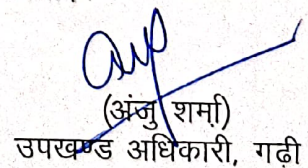 (अंजु शर्मा)
उपखण्ड अधिकारी, गढ़ी